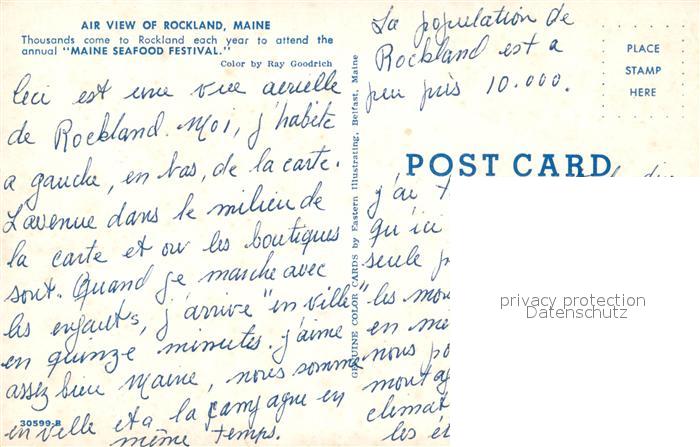 AIR VIEW OF ROCKLAND, MAINE
Thousands come to Rockland each year to attend the
annual "MAINE SEAFOOD FESTIVAL."
Color by Ray Goodrich
Ceci est une vue aerielle
de Rockland. Moi, j'habite
a gauche, en bas, de la carte.
L'avenue dans le milieu de
la carte et ou les boutiques
sont. Quand je marche avec
les enfants, j'arrive "en ville"
en quinze minutes. j'aime
assez bien Maine, nous somme
en ville et a la campagne en
même temps.
30599-B
GENUINE COLOR CARDS by Eastern Illustrating, Belfast, Maine
La population de
Rockland est a
peu près 10.000.
PLACE
STAMP
HERE
POST CARD
j'ai
qu'ici
seule
les
en
nous
climat
les
privacy protection
Datenschutz